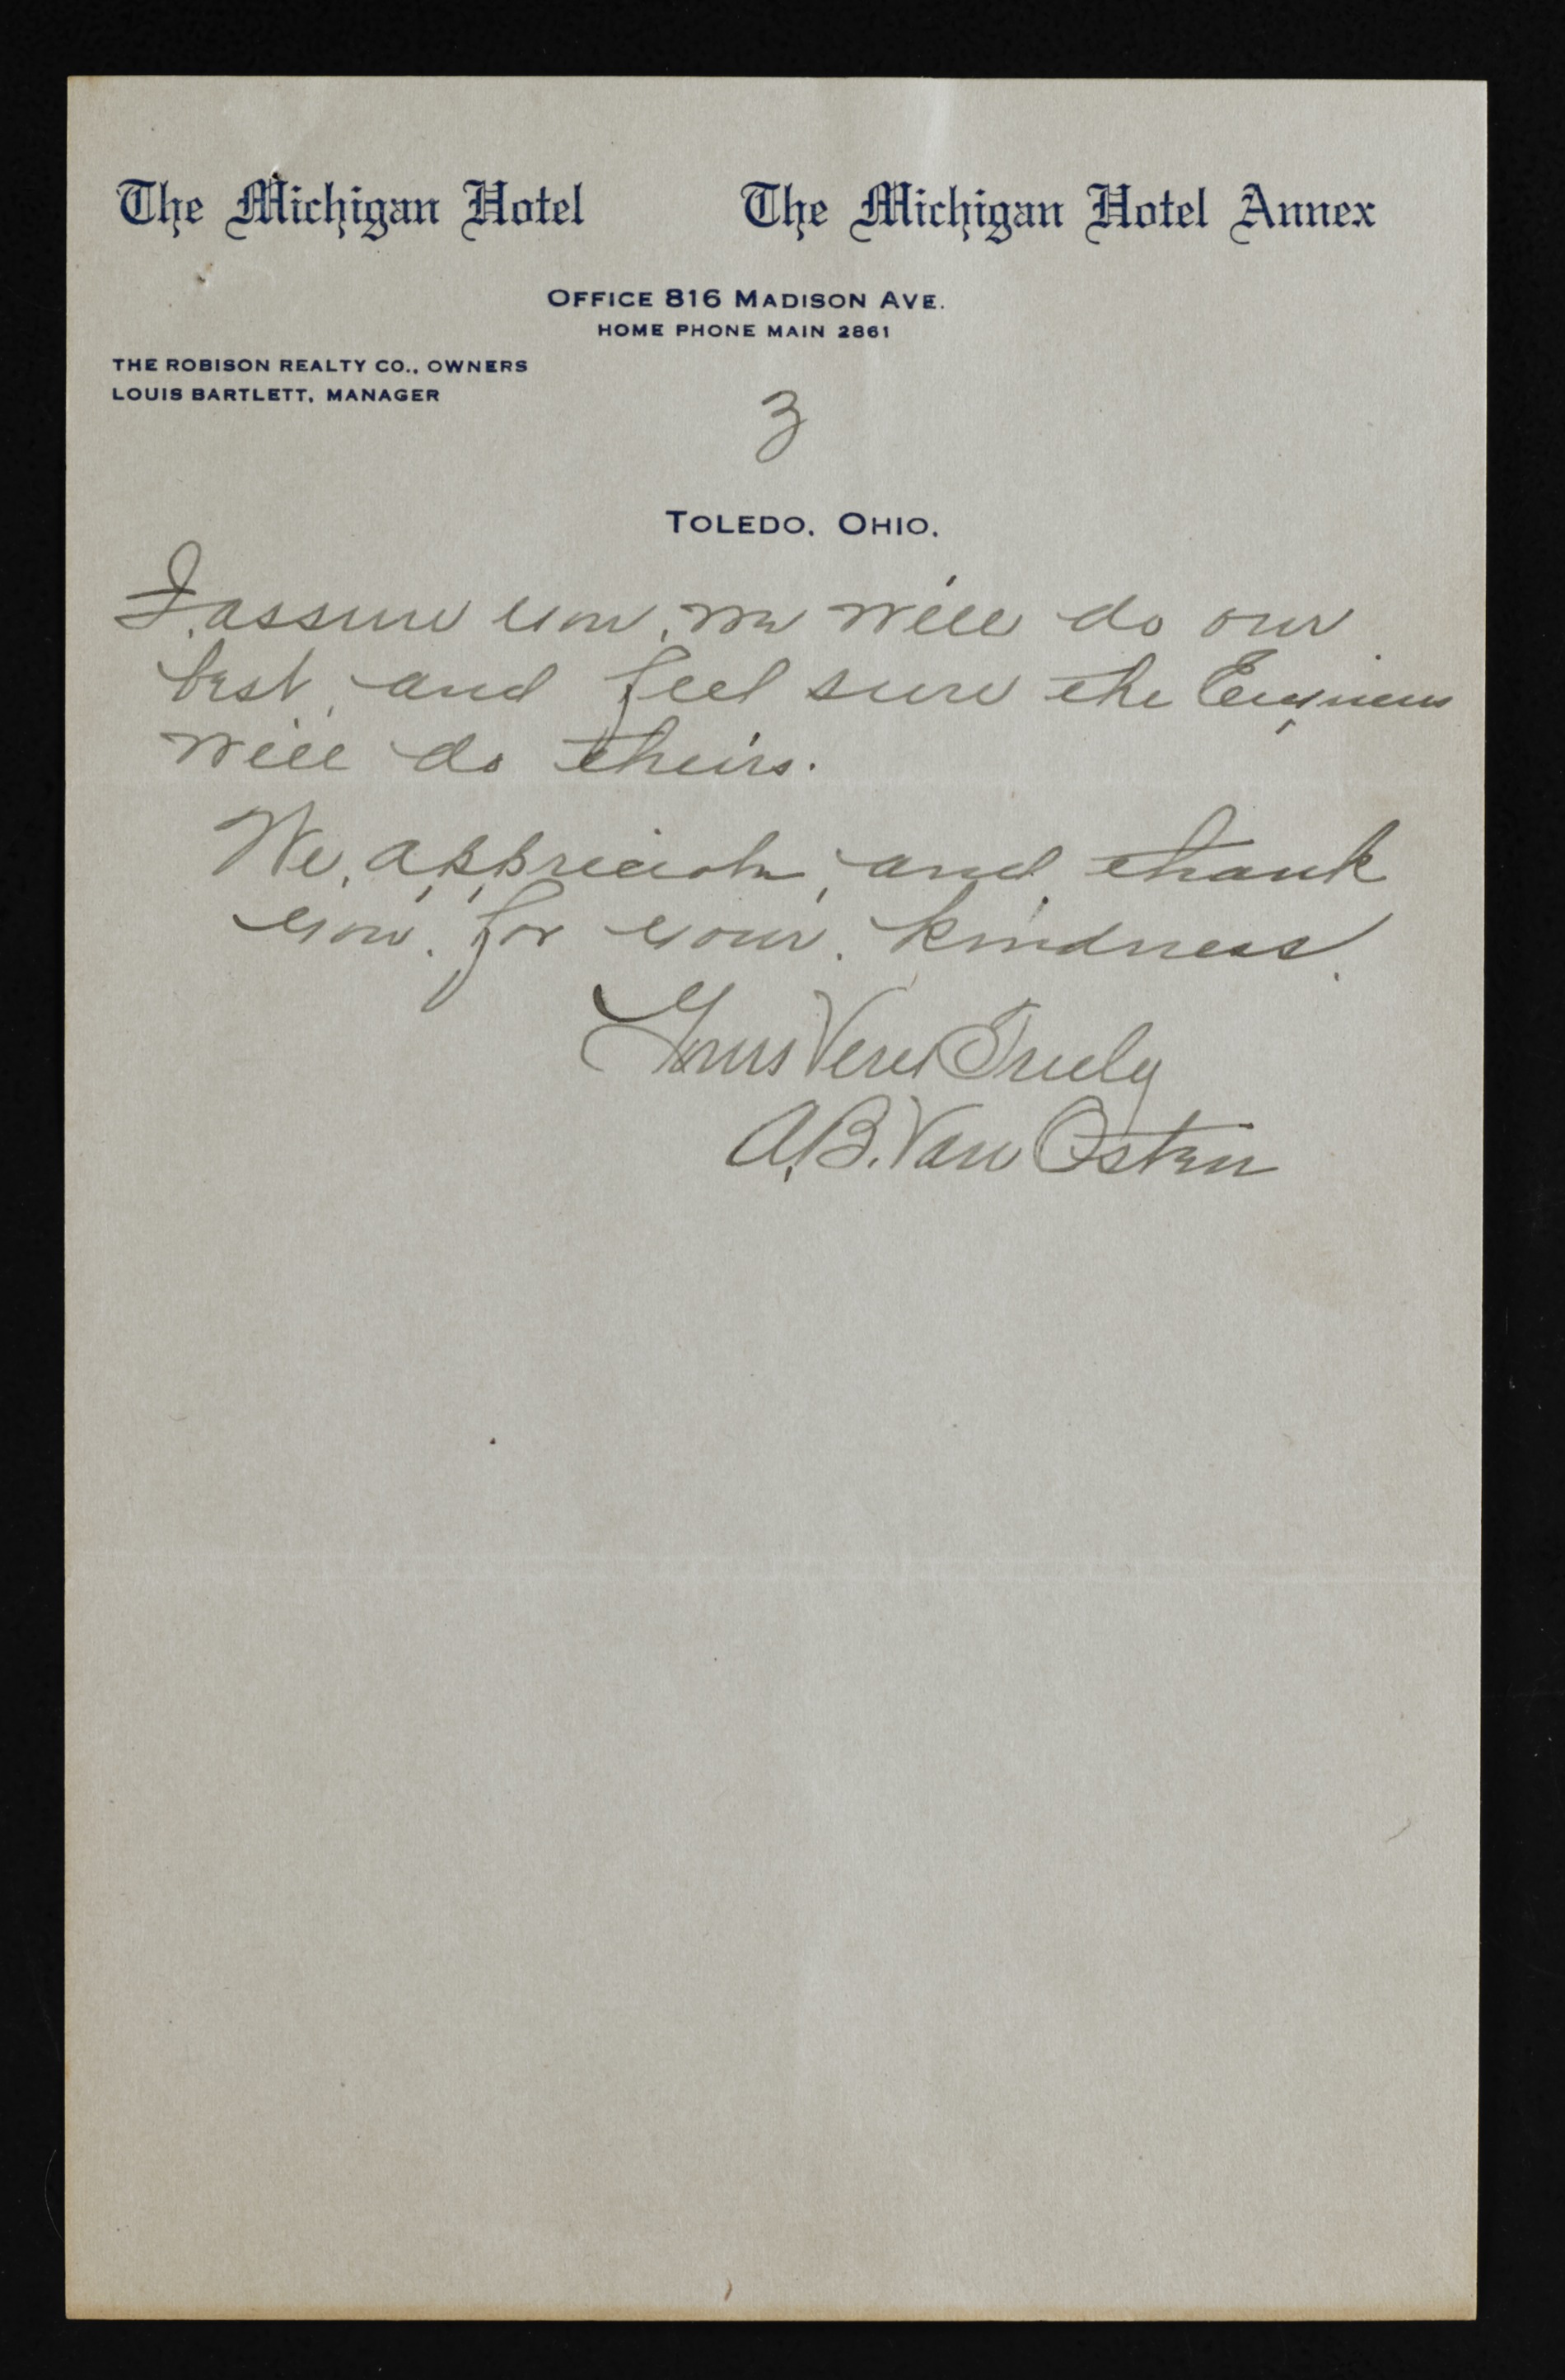 The Michigan Hotel The Michigan Hotel Annex
OFFICE 816 MADISON AVE.
HOME PHONE MAIN 2861
THE ROBISON REALTY CO., OWNERS
LOUIS BARTLETT, MANAGER
3
TOLEDO, OHIO.
I, assure you, we will do our
best, and feel sure the Engineers
will do theirs.
We, appreciate, and thank
you. for your. kindness.
Yours Very Truly
A.B. Van Osten